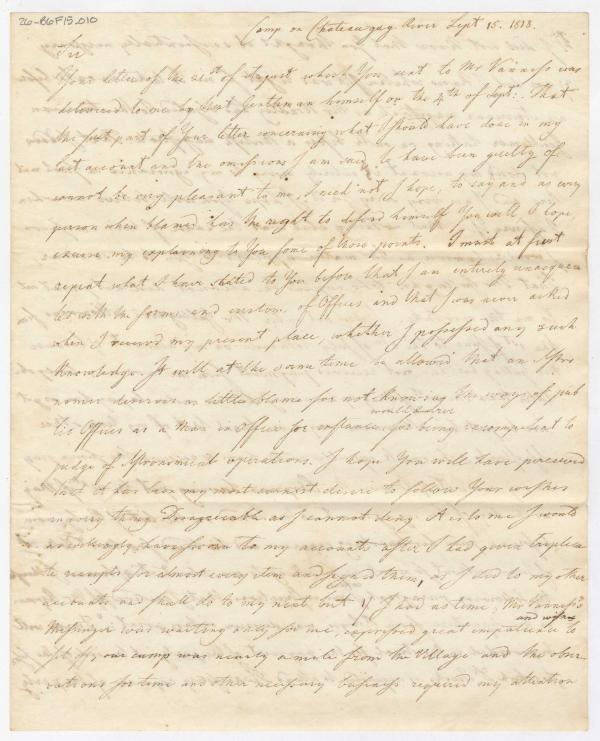 26-B6F15.010
Camp on Chateaugay River Sept 15. 1818.
Sir
Your letter of the 21st of August which You sent to Mr Vanness was
delivered to me by that Gentleman himself on the 4th of Sept: That
the first part of Your letter concerning what I should have done in my
last account and the omissions I am said to have been guilty of
cannot be very pleasant to me, I need not, I hope, to say and as every
person when blamed has the right to defend himself You will, I hope,
excuse my explaining to You some of those points. I must at first
repeat what I have stated to You before that I am entirely unacquain
ted with the forms and customs of Offices and that I was never asked
when I received my present place, whether I possessed any such
Knowledge. It will at the same time be allowed that an Astro
nomer deserves as little blame for not knowing the ways of pub
lic Offices as a Man in Office for instance would deserve for being incompetent to
judge of Astronomical operations. I hope You will have perceived
that it has been my most earnest desire to follow Your wishes
in every thing. Disagreeable as I cannot deny it is to me I would
unwillingly have sworn to my accounts after I had given triplica
te receipts for almost every item and signed them, as I did to my other
accounts and shall do to my next but I had no time, Mr Vanness's
Messenger was waiting only for me, expressed great impatience and wished to
set off, our camp was nearly a mile from the Village and the obser-
vations for time and other necessary business required my attention